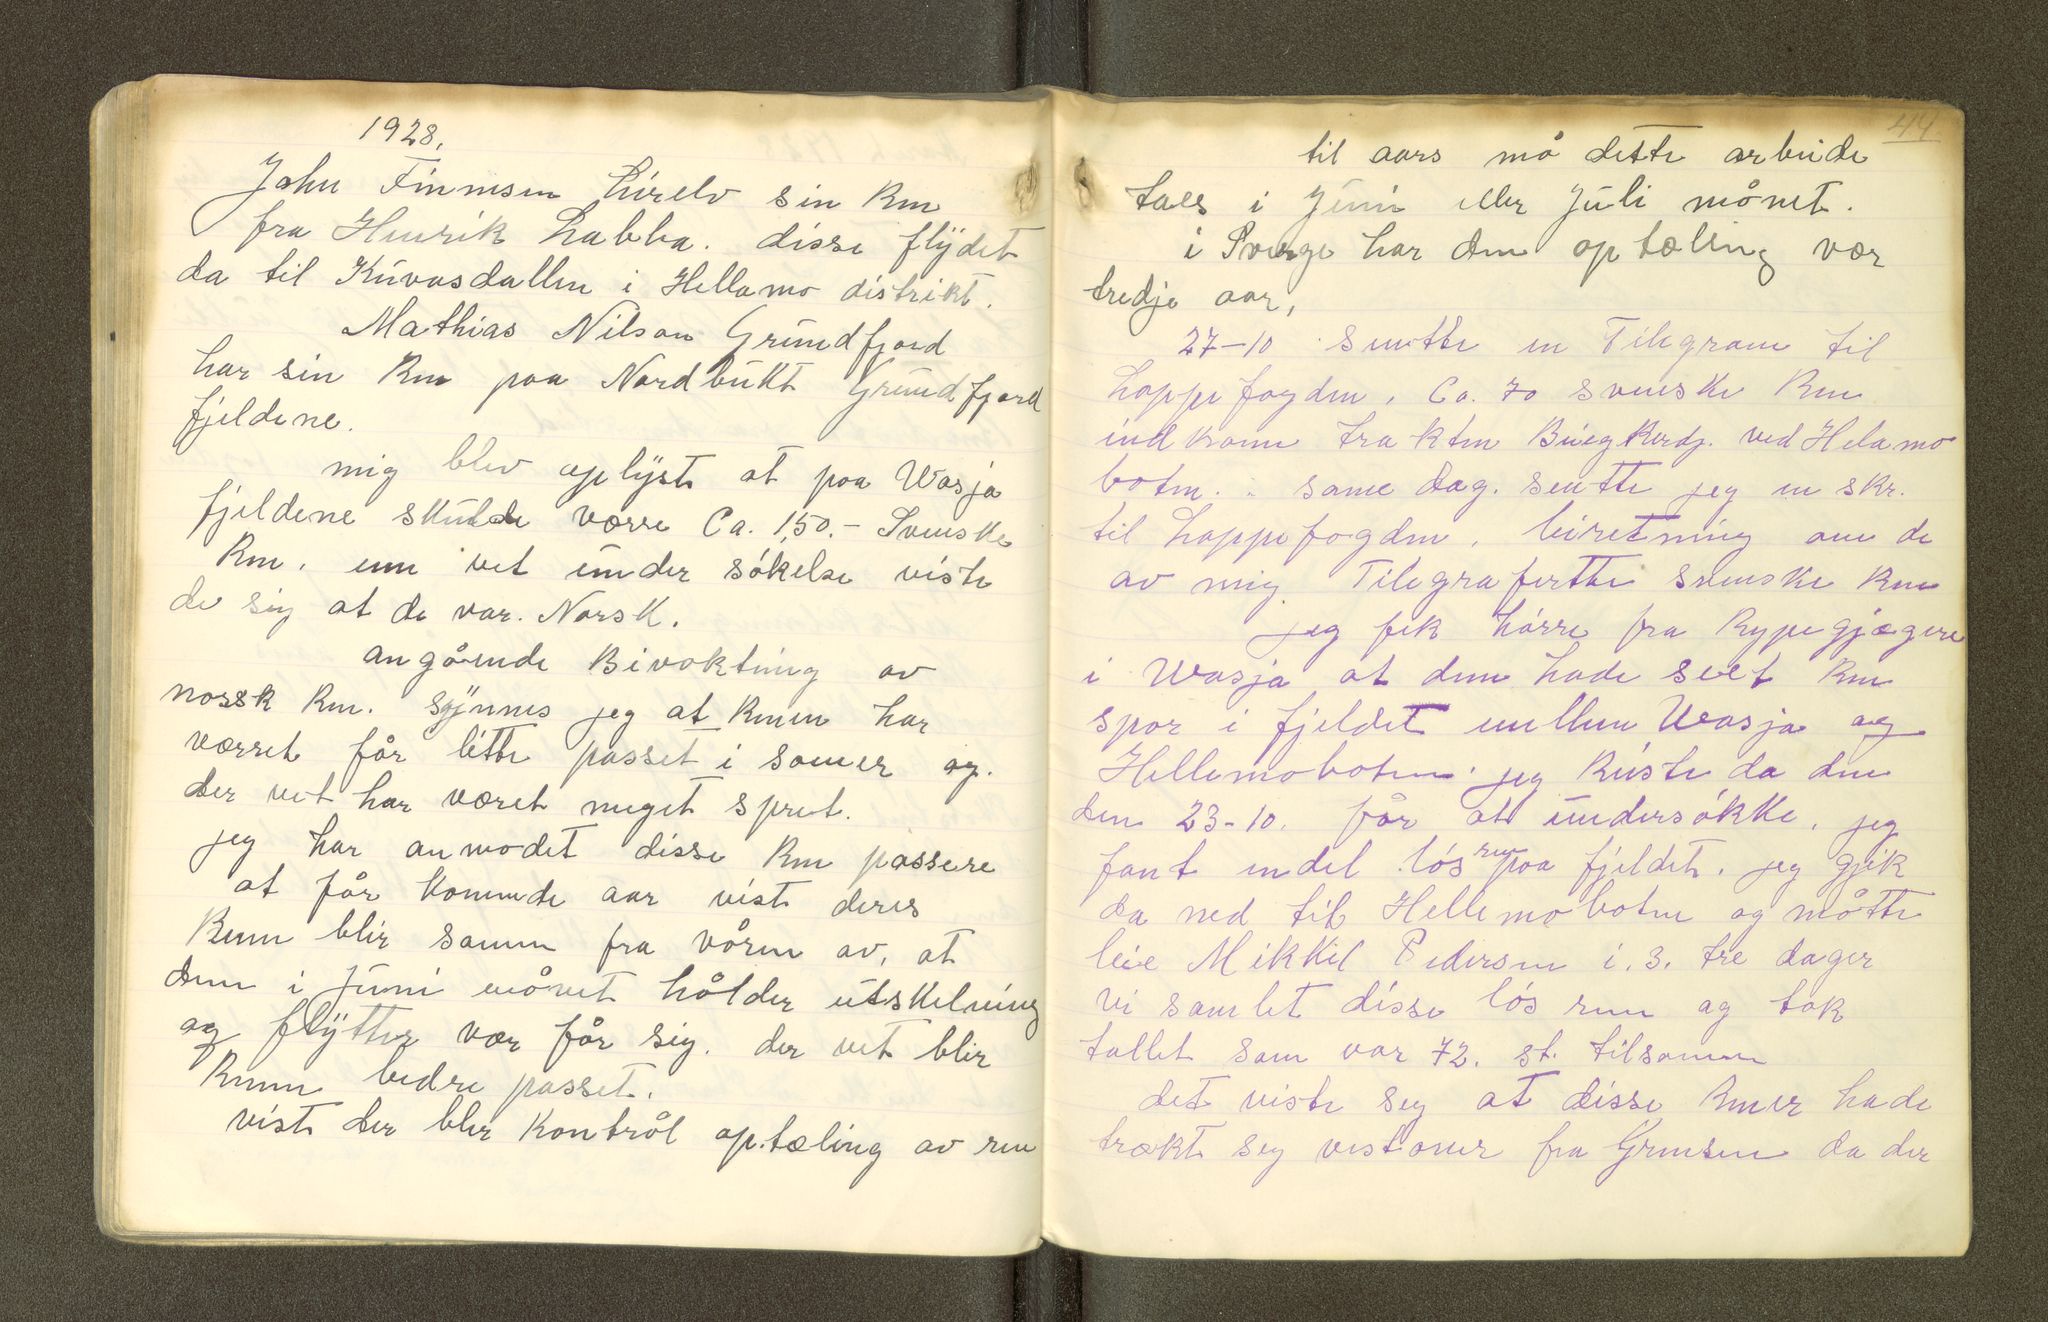 1928.
John Finnsen hirelv sin Ren
fra Henrik Labba. disse flÿdet
da til Kúvasdallen i Hellamo distrikt.
Mathias Nilson Grúndfjord
har sin Ren paa Nordbúkt Grúndfjord
fjeldene.
mig blev oplÿst at paa Wasja
fjeldene skúlde værre Ca. 150.- Svenske
Ren. enn vet únder sókelse viste
de sig at de var. Norsk.
angående Bivoktning av
norsk Ren. sÿnnes jeg at Renen har
værret får litte passet i somer og.
der vet har været meget spret.
jeg har anmodet disse Ren passere
at får komende aar vist deres
Renn blir samen fra våren av, at
dem i Júni månet hålder útskelning
og flÿtter vær får sig. der vet blir
Renen bedre passet.
vist der blir Kontrål optæling av ren
44.
til aars må dette arbeide
taes i Júni eller Júli månet.
i Sverge har dem optæling vær
tredje aar,
27-10 sentte en Telegram til
Lappefogden, Ca. 70 svenske Ren
indkom trakten Búegkerdj. ved Helamo
botn. same dag. sentte jeg en skr.
til Lappefogden, beretning om de
av mig Telegrafertte svenske Ren
jeg fik hórre fra Rypegjægere
i Wasja at dem hade seet Ren
spor i fjeldet mellem Wasja og
Hellemoboten. jeg Reiste da den
den 23-10. får at úndersókke, jeg
fant endel lós ren paa fjeldet. jeg gjik
da ned til Hellemobotn og måtte
leie Mikkel Pedersen i. 3. tre dager
vi samlet disse lós ren og tok
tallet som var 72. st. tilsamen
det viste seg at disse Rener hade
trækt seg vestover fra Grensen da der